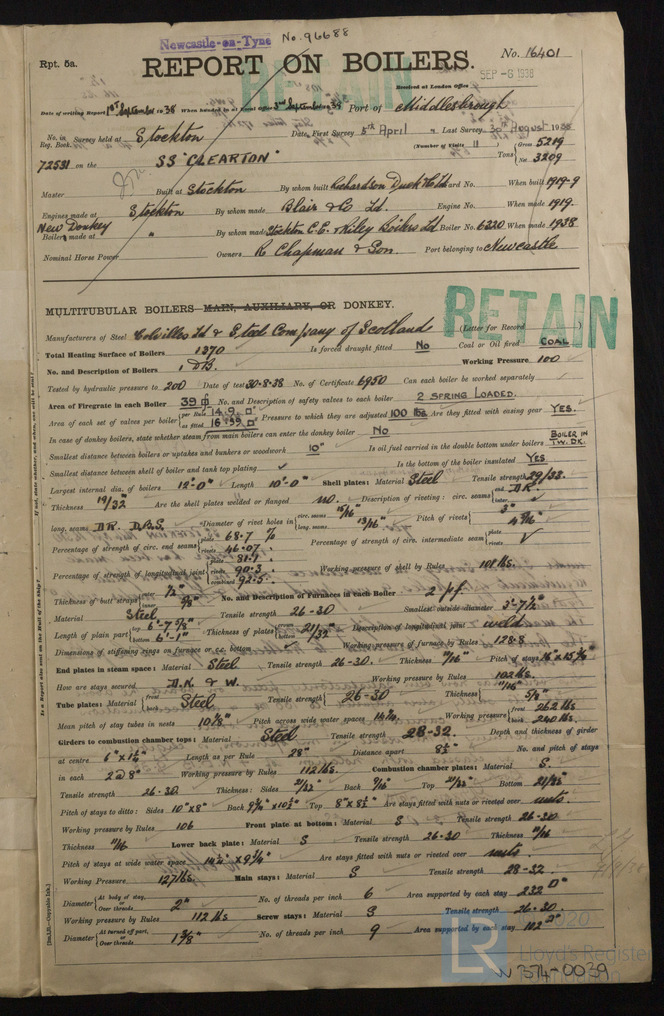 Newcastle-on-Tyne No. 96688
Rpt. 5a.
REPORT ON BOILERS. No. 16401
RETAIN
Received at London Office SEP -6 1938
Date of writing Report 1st September 1938 When handed in at Local Office 3rd September 1938 Port of Middlesbrough
No. in Reg. Book. Survey held at Stockton Date, First Survey 5th April Last Survey, 30th August 1938
(Number of Visits 11) Gross 5219
72531 on the SS "CLEARTON" Tons Net 3209
Master Built at Stockton By whom built Richardson Duck & Co Ld Yard No. When built 1919-9
Engines made at Stockton By whom made Blair & Co Ld. Engine No. When made 1919.
New Donkey Boilers made at " By whom made Stockton C.E. & Riley Boilers Ld Boiler No. 6320 When made 1938
Nominal Horse Power Owners R Chapman & Son. Port belonging to Newcastle
MULTITUBULAR BOILERS MAIN, AUXILIARY, OR DONKEY.
RETAIN
Manufacturers of Steel Colvilles Ld & Steel Company of Scotland (Letter for Record )
Total Heating Surface of Boilers 1270 Is forced draught fitted No Coal or Oil fired COAL
No. and Description of Boilers 1 DB. Working Pressure 100
Tested by hydraulic pressure to 200 Date of test 30-8-38 No. of Certificate 6950 Can each boiler be worked separately
Area of Firegrate in each Boiler 39 No. and Description of safety valves to each boiler 2 SPRING LOADED.
Area of each set of valves per boiler per Rule 14.9 as fitted 16.59 Pressure to which they are adjusted 100 lbs. Are they fitted with easing gear YES.
In case of donkey boilers, state whether steam from main boilers can enter the donkey boiler No
Smallest distance between boilers or uptakes and bunkers or woodwork 10" Is oil fuel carried in the double bottom under boilers BOILER IN TW. DK.
Smallest distance between shell of boiler and tank top plating Is the bottom of the boiler insulated YES
Largest internal dia. of boilers 12'-0" Length 10'-0" Shell plates: Material Steel Tensile strength 29/33.
Thickness 19/32" Are the shell plates welded or flanged no. Description of riveting: circ. seams end DR. inter.
long. seams DR. DBS. Diameter of rivet holes in circ. seams 15/16" long. seams 13/16" Pitch of rivets 3"
Percentage of strength of circ. end seams plate 68.7 % rivets 46.07 Percentage of strength of circ. intermediate seam plate rivets
Percentage of strength of longitudinal joint plate rivets 90.3 combined 92.5 Working pressure of shell by Rules 101 lbs.
Thickness of butt straps outer 1/2" inner 5/8" No. and Description of Furnaces in each Boiler 2 pf
Material Steel Tensile strength 26-30 Smallest outside diameter 3'-7½"
Length of plain part top 6'-7⅝" bottom 6'-1" Thickness of plates crown bottom 21/32" Description of longitudinal joint weld.
Dimensions of stiffening rings on furnace or c.c. bottom Working pressure of furnace by Rules 128.8
End plates in steam space: Material Steel Tensile strength 26-30. Thickness 11/16" Pitch of stays
How are stays secured D.K & W. Working pressure by Rules 102 lbs.
Tube plates: Material front back Steel Tensile strength 26-30 Thickness 11/16" 5/8"
Mean pitch of stay tubes in nests 10⅛" Pitch across wide water spaces Working pressure front 262 lbs back 240 lbs.
Girders to combustion chamber tops: Material Steel Tensile strength 28-32. Depth and thickness of girder
at centre Length as per Rule 28" Distance apart 8½" No. and pitch of stays
in each 2 @ 8" Working pressure by Rules 112 lbs. Combustion chamber plates: Material S.
Tensile strength 26-30 Thickness: Sides 21/32" Back 9/16" Top 21/32" Bottom 21/32"
Pitch of stays to ditto: Sides 10" x 8" Back Top 8" x 8½ Are stays fitted with nuts or riveted over nuts
Working pressure by Rules 106 Front plate at bottom: Material S Tensile strength 26-30
Thickness 11/16 Lower back plate: Material S Tensile strength 26-30 Thickness 11/16
Pitch of stays at wide water space Are stays fitted with nuts or riveted over nuts.
Working Pressure 127 lbs. Main stays: Material S Tensile strength 28-32.
Diameter At body of stay, or Over threads 2" No. of threads per inch 6 Area supported by each stay 232
Working pressure by Rules 112 lbs Screw stays: Material S Tensile strength 26-30.
Diameter At turned off part, or Over threads 1⅜" No. of threads per inch 9 Area supported by each stay 102
LR Lloyd's Register Foundation 2020
W374-0039